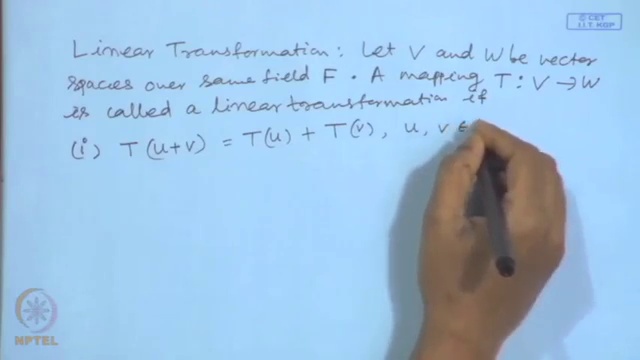 © CET
I.I.T. KGP
Linear Transformation: Let V and W be vector
spaces over same field F. A mapping T: V → W
is called a linear transformation if
(i) T(u+v) = T(u) + T(v), u, v ∈
NPTEL